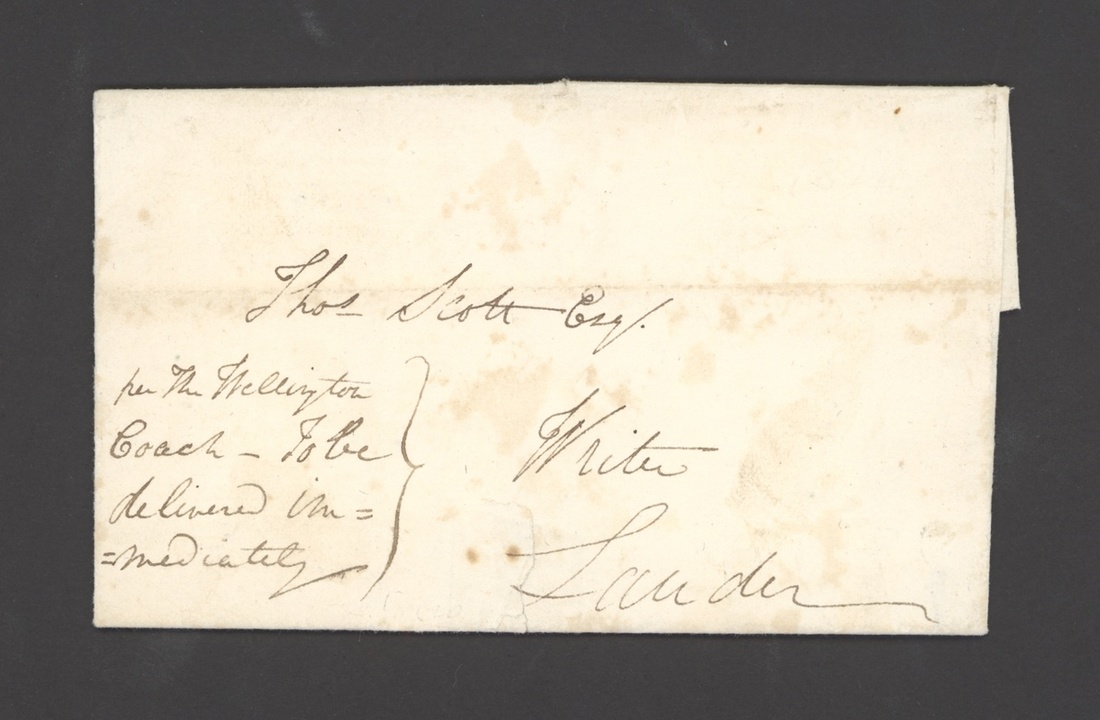 Thos Scott Esq/.
per The Wellington
Coach – To be
delivered im=
=mediately
Writer
Lauder